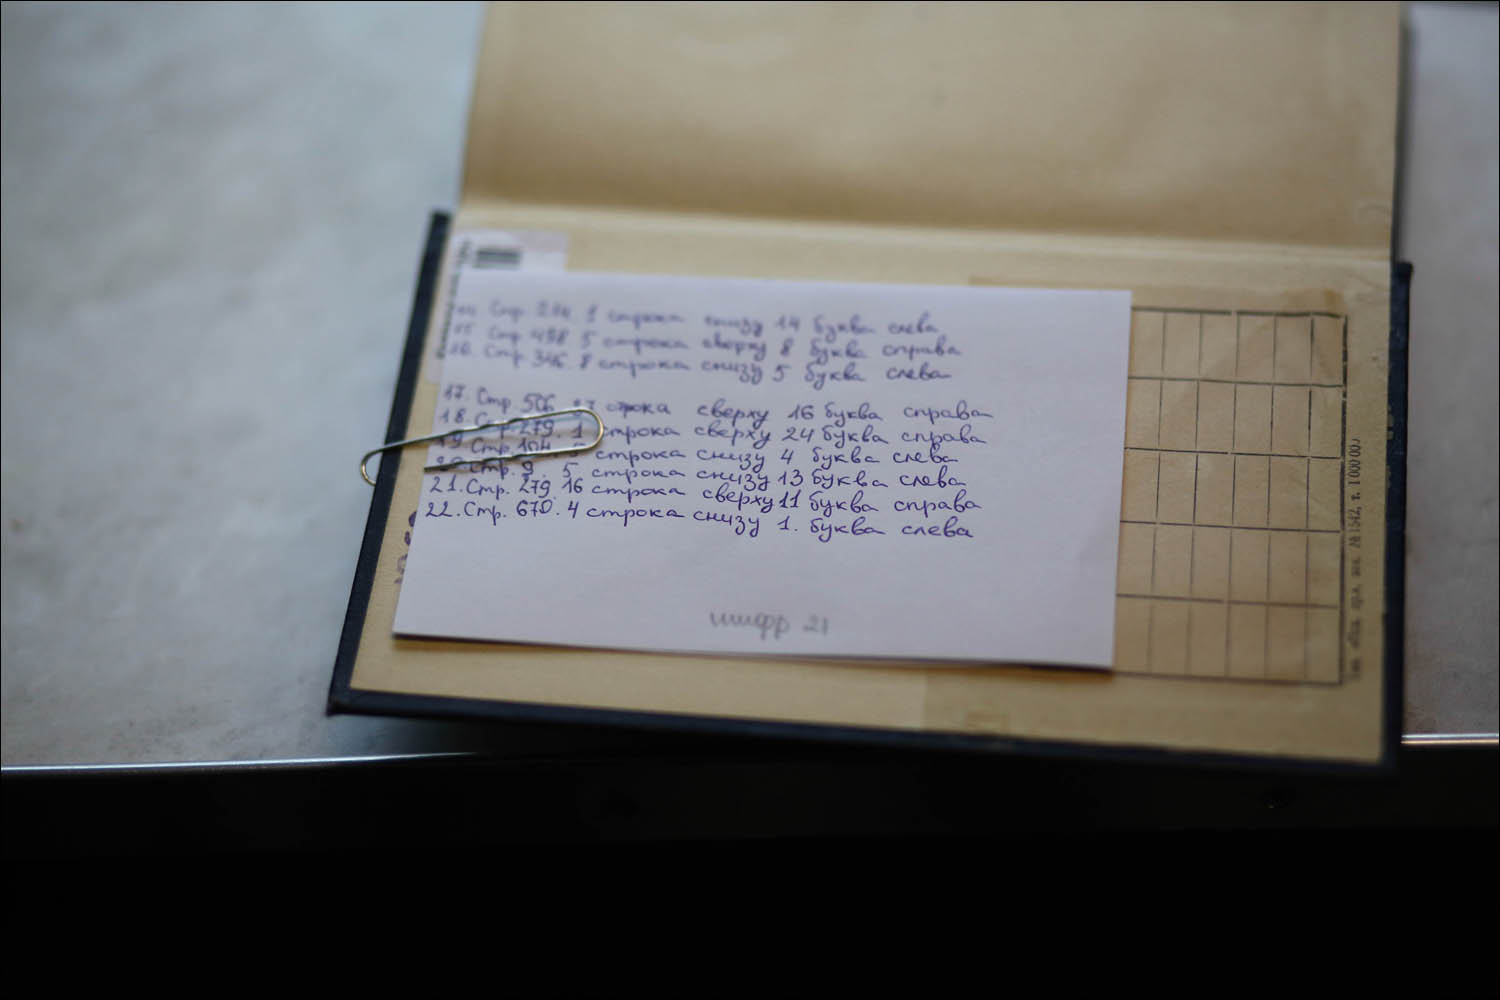 Стр. 274. 1 строка снизу 14 буква слева
15 Стр. 498 5 строка сверху 8 буква справа
16. Стр. 346. 8 строка снизу 5 буква слева
17. Стр. 506 строка сверху 16 буква справа
18. Стр. 279. 1 строка сверху 24 буква справа
19 Стр. 104 строка снизу 4 буква слева
Стр. 9. 5 строка снизу 13 буква слева
21. Стр. 279. 16 строка сверху 11 буква справа
22. Стр. 670. 4 строка снизу 1. буква слева
шифр 21